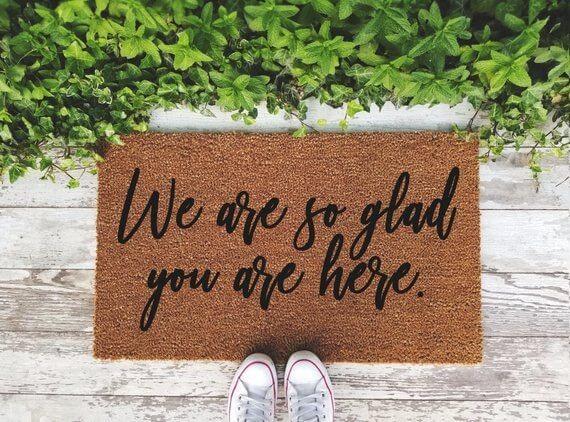 We are so glad
you are here.